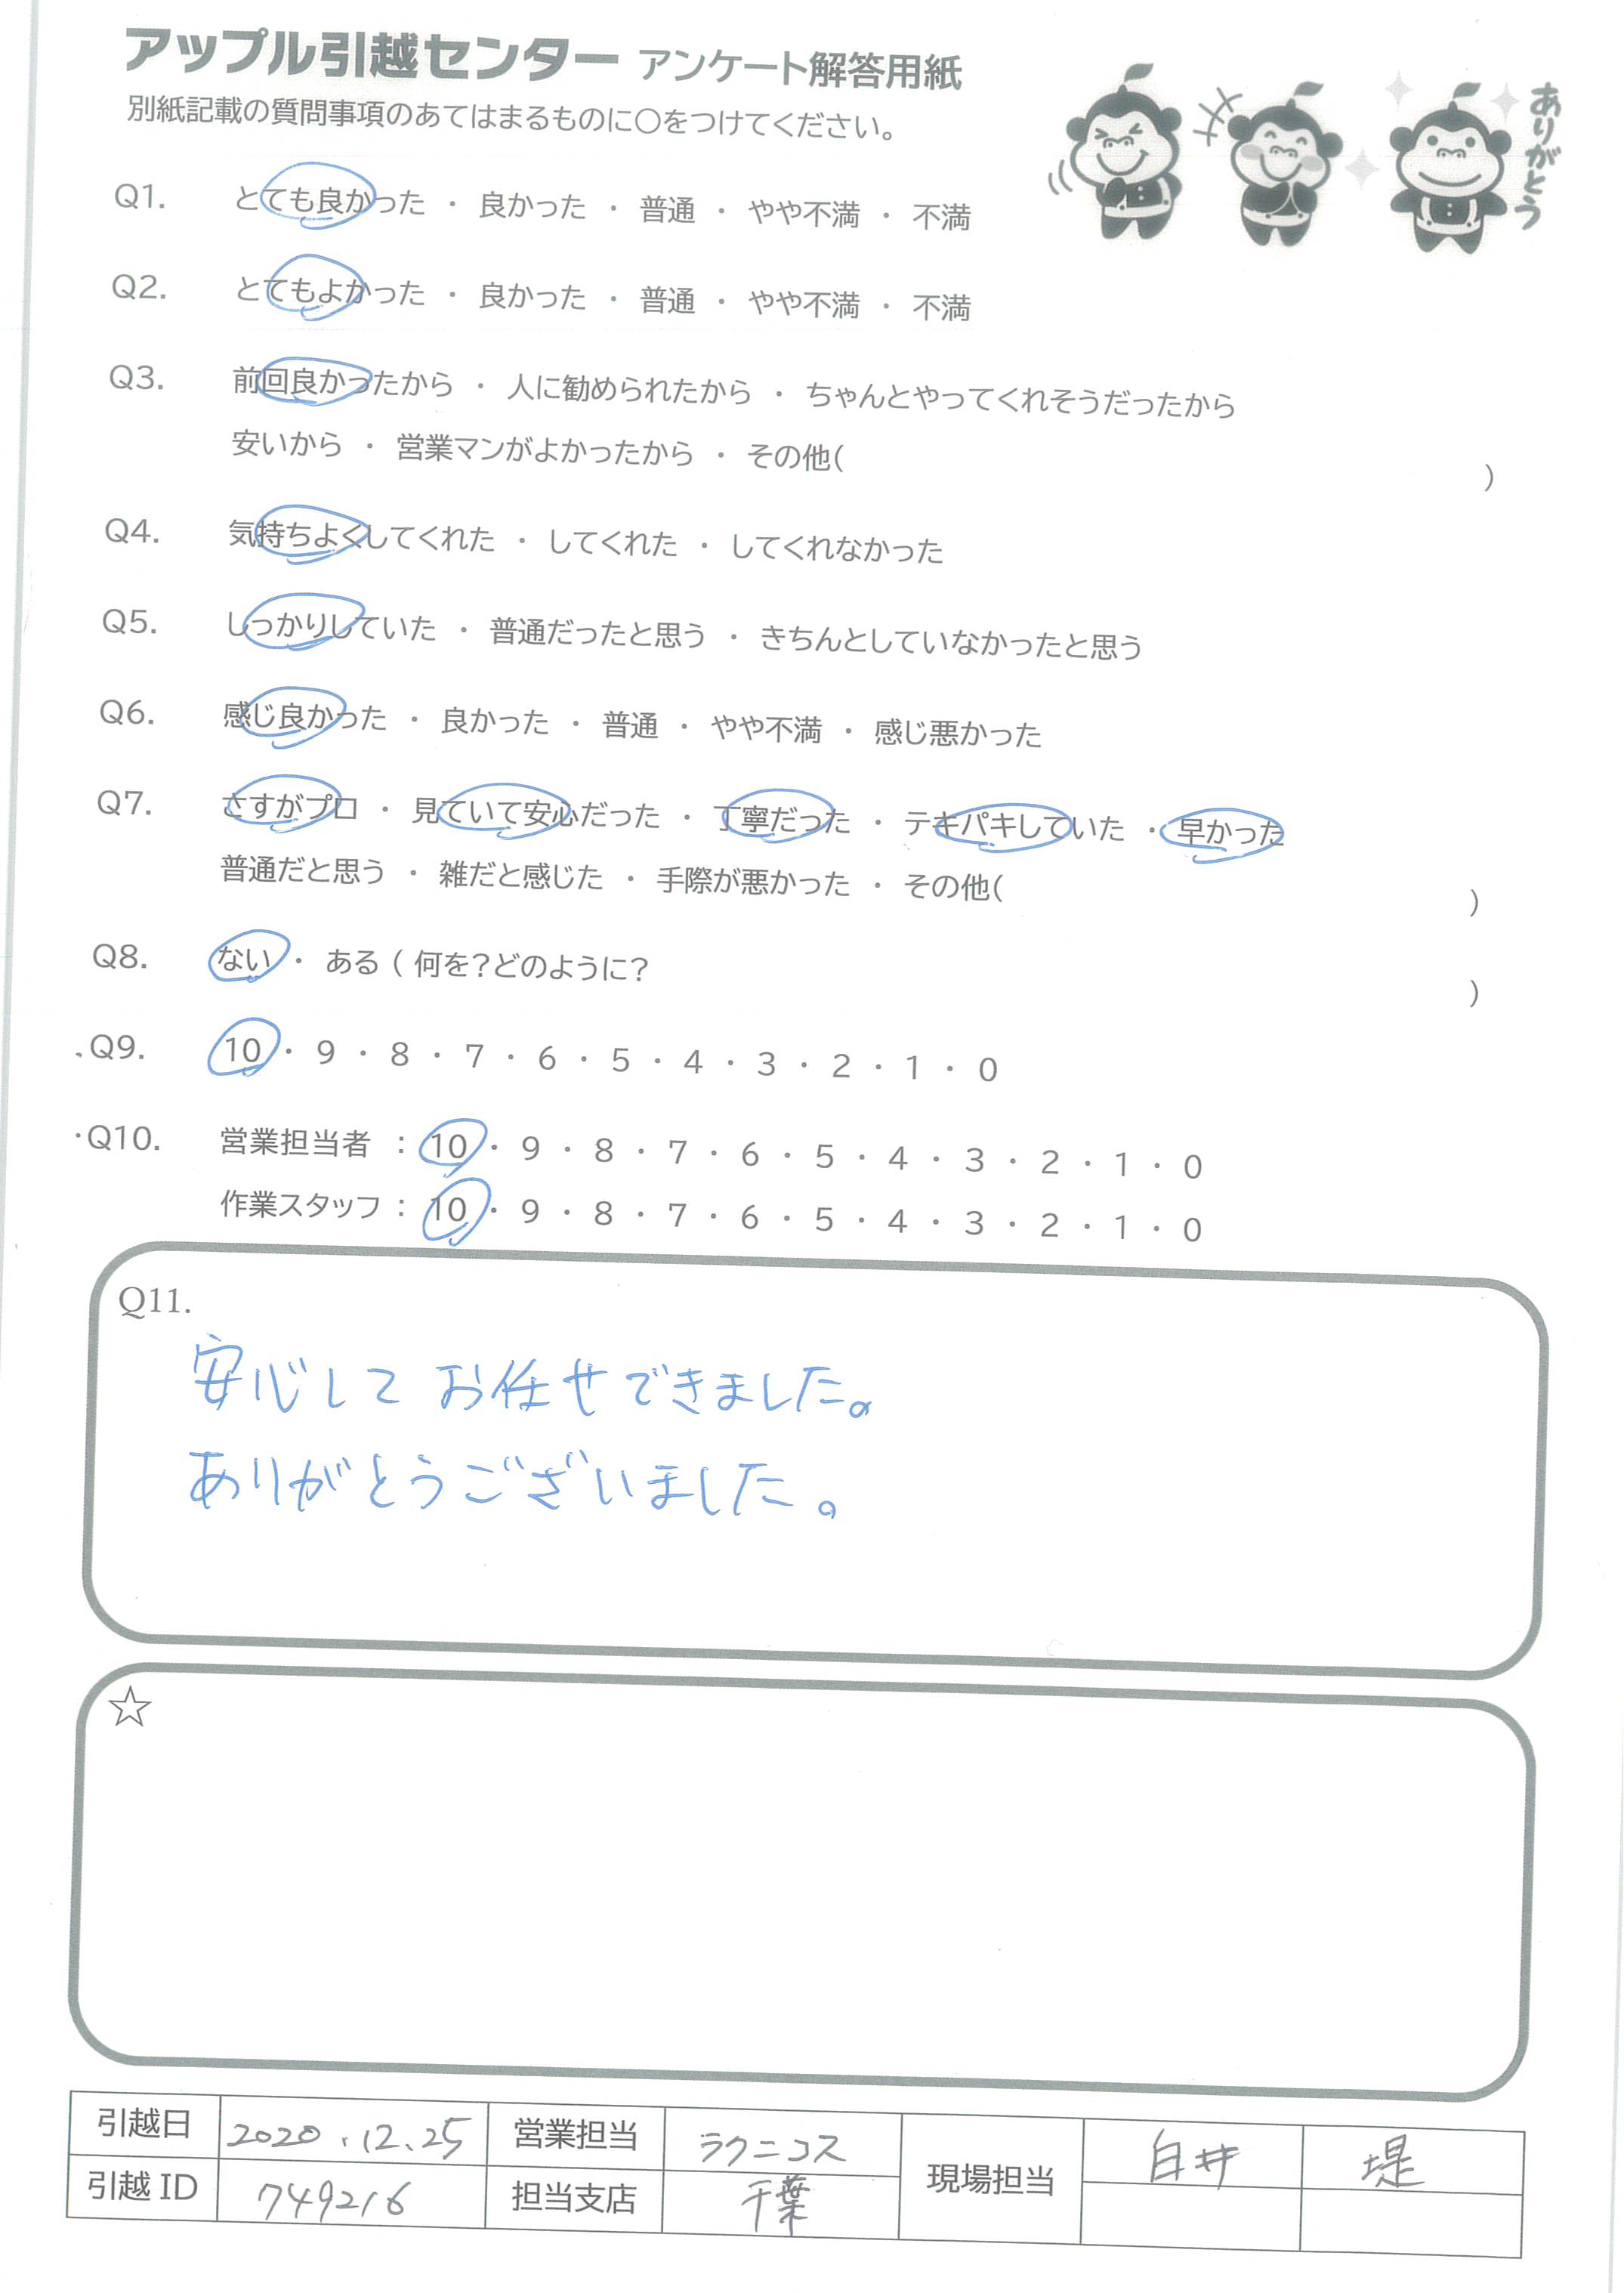 アップル引越センター アンケート解答用紙
別紙記載の質問事項のあてはまるものに〇をつけてください。
ありがとう
Q1. とても良かった ・ 良かった ・ 普通 ・ やや不満 ・ 不満
Q2. とてもよかった ・ 良かった ・ 普通 ・ やや不満 ・ 不満
Q3. 前回良かったから ・ 人に勧められたから ・ ちゃんとやってくれそうだったから
安いから ・ 営業マンがよかったから ・ その他( )
Q4. 気持ちよくしてくれた ・ してくれた ・ してくれなかった
Q5. しっかりしていた ・ 普通だったと思う ・ きちんとしていなかったと思う
Q6. 感じ良かった ・ 良かった ・ 普通 ・ やや不満 ・ 感じ悪かった
Q7. さすがプロ ・ 見ていて安心だった ・ 丁寧だった ・ テキパキしていた ・ 早かった
普通だと思う ・ 雑だと感じた ・ 手際が悪かった ・ その他( )
Q8. ない ・ ある ( 何を?どのように? )
Q9. 10 ・ 9 ・ 8 ・ 7 ・ 6 ・ 5 ・ 4 ・ 3 ・ 2 ・ 1 ・ 0
Q10. 営業担当者 : 10 ・ 9 ・ 8 ・ 7 ・ 6 ・ 5 ・ 4 ・ 3 ・ 2 ・ 1 ・ 0
作業スタッフ : 10 ・ 9 ・ 8 ・ 7 ・ 6 ・ 5 ・ 4 ・ 3 ・ 2 ・ 1 ・ 0
Q11.
安心して お任せできました。
ありがとうございました。
☆
引越日 2020.12.25 営業担当 ラクニコス 現場担当 白井 堤
引越 ID 749216 担当支店 千葉